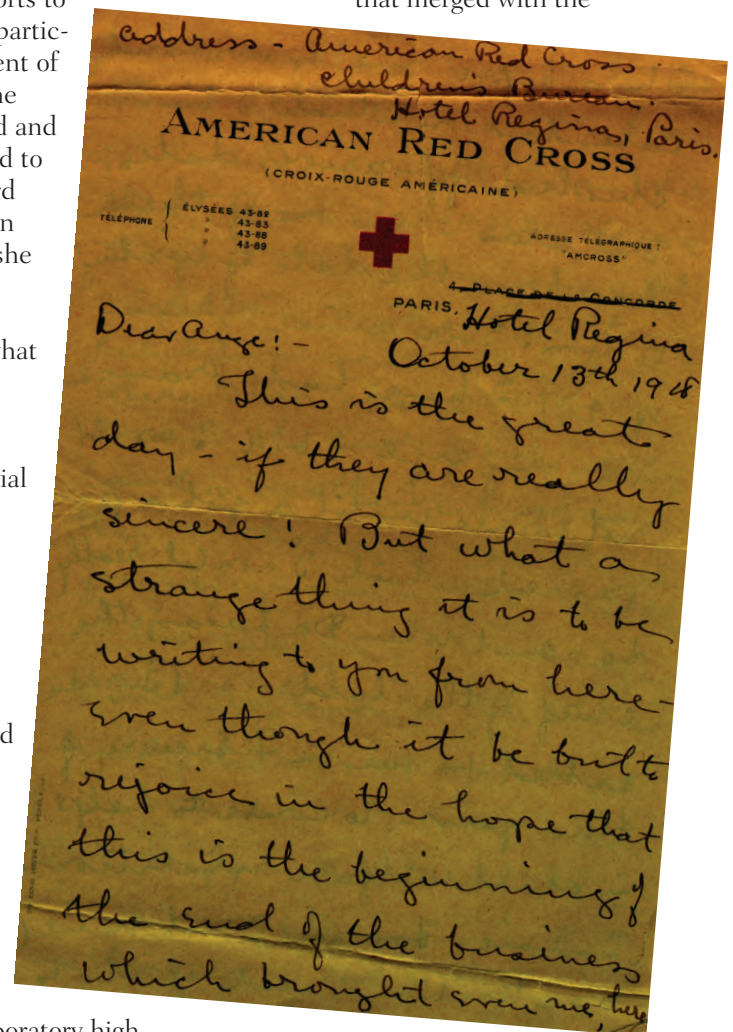 orts to
that merged with the
partic-
ent of
ne
d and
d to
rd
n
she
hat
ial
d
boratory high
address - American Red Cross
children's Bureau.
Hotel Regina, Paris.
AMERICAN RED CROSS
(CROIX-ROUGE AMÉRICAINE)
TÉLÉPHONE { ÉLYSÉES 43-82
" 43-83
" 43-88
" 43-89
ADRESSE TÉLÉGRAPHIQUE :
"AMCROSS"
4, PLACE DE LA CONCORDE
PARIS, Hotel Regina
October 13th 1918
Dear Ange! -
This is the great
day - if they are really
sincere! But what a
strange thing it is to be
writing to you from here -
even though it be but to
rejoice in the hope that
this is the beginning of
the end of the business
which brought even me here